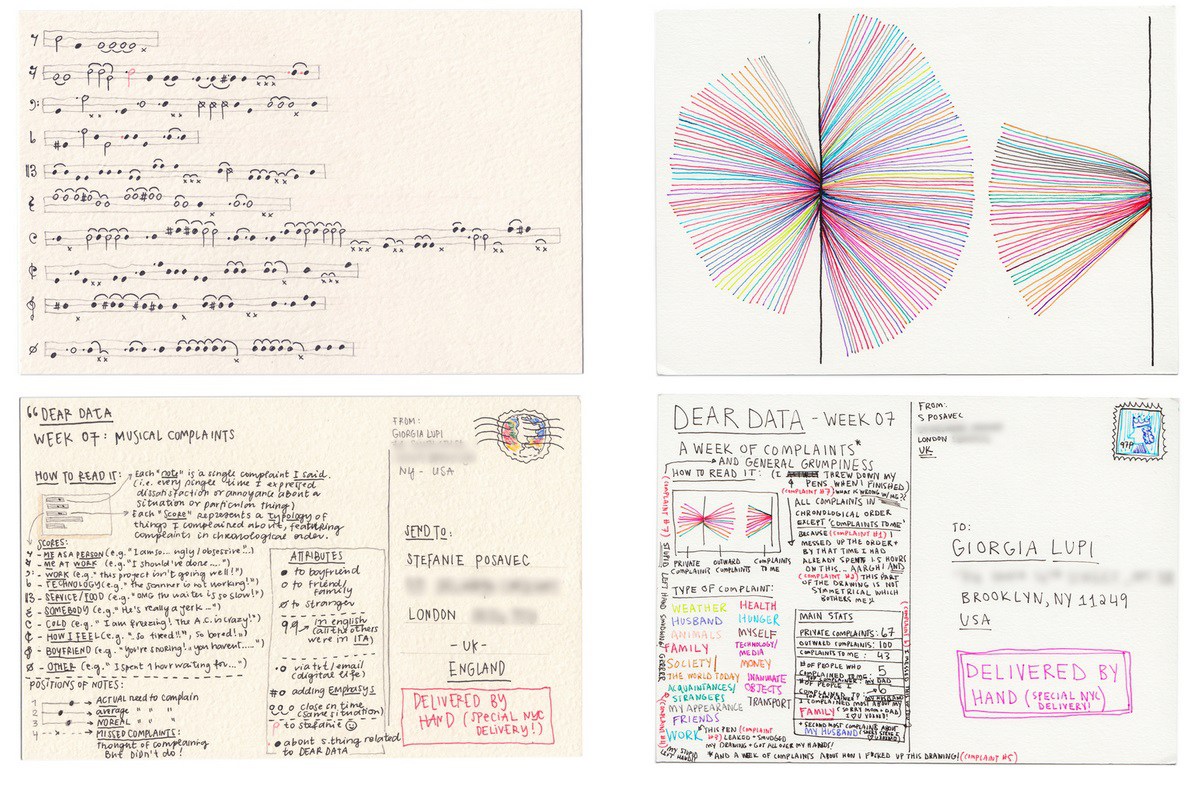 “DEAR DATA
WEEK 07: MUSICAL COMPLAINTS
HOW TO READ IT:
Each "note" is a single complaint I said.
(i.e. every single time I expressed
dissatisfaction or annoyance about a
situation or particular thing)
Each "Score" represents a typology of
things I complained about, featuring
complaints in chronological order.
SCORES:
- ME AS A PERSON (e.g. "I am so... ugly / obsessive"..)
- ME AT WORK (e.g. "I should've done....")
- WORK (e.g. "this project isn't going well!")
- TECHNOLOGY (e.g. "the scanner is not working!")
- SERVICE/FOOD (e.g. "OMG the waiter is so slow!")
- SOMEBODY (e.g. "He's really a jerk...")
- COLD (e.g. "I am freezing! The A.C. is crazy!")
- HOW I FEEL (e.g. "..so tired!!", so bored!")
- BOYFRIEND (e.g. "You're snoring!, you haven't.....")
- OTHER (e.g. "I spent 1 hour waiting for...")
POSITIONS OF NOTES:
1 ACTUAL need to complain
2 average " " "
3 NO REAL " " "
4 MISSED COMPLAINTS:
Thought of complaining
But didn't do!
ATTRIBUTES
to boyfriend
to friend/
family
to stranger
in english
(all the others
were in ITA)
via txt/email
(digital life)
adding EMPHASYS
close in time
(same situation)
to stefanie
about s.thing related
to DEAR DATA
FROM:
GIORGIA LUPI
NY - USA
SEND TO:
STEFANIE POSAVEC
LONDON
- UK -
ENGLAND
DELIVERED BY
HAND (SPECIAL NYC
DELIVERY!)
DEAR DATA - WEEK 07
A WEEK OF COMPLAINTS*
AND GENERAL GRUMPINESS
HOW TO READ IT:
(I THREW DOWN MY
4 PENS WHEN I FINISHED)
(COMPLAINT #7) WHAT IS WRONG W/ ME?!
ALL COMPLAINTS IN
CHRONOLOGICAL ORDER
EXCEPT 'COMPLAINTS TO ME'
BECAUSE (COMPLAINT #1) I
MESSED UP THE ORDER +
BY THAT TIME I HAD
ALREADY SPENT 1.5 HOURS
ON THIS... AARGH! AND
(COMPLAINT #2) THIS PART
OF THE DRAWING IS NOT
SYMMETRICAL WHICH
BOTHERS ME
PRIVATE COMPLAINTS
OUTWARD COMPLAINTS
COMPLAINTS TO ME
TYPE OF COMPLAINT:
WEATHER
HUSBAND
ANIMALS
FAMILY
SOCIETY/
THE WORLD TODAY
ACQUAINTANCES/
STRANGERS
MY APPEARANCE
FRIENDS
WORK
HEALTH
HUNGER
MYSELF
TECHNOLOGY/
MEDIA
MONEY
INANIMATE
OBJECTS
TRANSPORT
MAIN STATS
PRIVATE COMPLAINTS: 67
OUTWARD COMPLAINTS: 100
COMPLAINTS TO ME: 43
# OF PEOPLE WHO
COMPLAINED TO ME: 5
# OF PEOPLE I
COMPLAINED TO: 6
I COMPLAINED MOST ABOUT
FAMILY (SORRY MOM + DAD,
I LUV YOUUU!)
+ SECOND MOST COMPLAINED ABOUT
MY HUSBAND
*THIS PEN (COMPLAINT
#3) LEAKED + SMUDGED
MY DRAWING + GOT ALL OVER MY HANDS!
*AND A WEEK OF COMPLAINTS ABOUT HOW I F*CKED UP THIS DRAWING! (COMPLAINT #5)
FROM:
S POSAVEC
LONDON
UK
97P
TO:
GIORGIA LUPI
BROOKLYN, NY 11249
USA
DELIVERED BY
HAND (SPECIAL NYC
DELIVERY!)